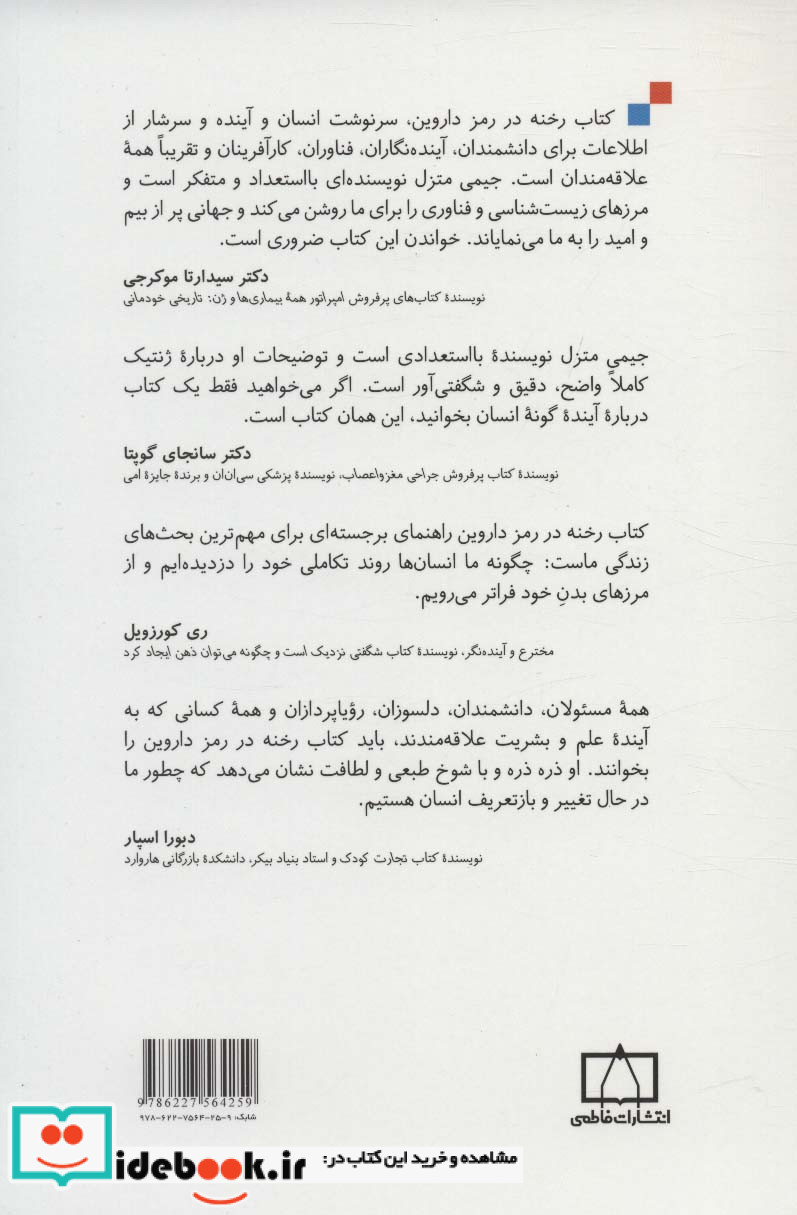 کتاب رخنه در رمز داروین، سرنوشت انسان و آینده و سرشار از
اطلاعات برای دانشمندان، آینده‌نگاران، فناوران، کارآفرینان و تقریباً همهٔ
علاقه‌مندان است. جیمی متزل نویسنده‌ای بااستعداد و متفکر است و
مرزهای زیست‌شناسی و فناوری را برای ما روشن می‌کند و جهانی پر از بیم
و امید را به ما می‌نمایاند. خواندن این کتاب ضروری است.
دکتر سیدارتا موکرجی
نویسندهٔ کتاب‌های پرفروش امپراتور همهٔ بیماری‌ها و ژن: تاریخی خودمانی
جیمی متزل نویسندهٔ بااستعدادی است و توضیحات او دربارهٔ ژنتیک
کاملاً واضح، دقیق و شگفتی‌آور است. اگر می‌خواهید فقط یک کتاب
دربارهٔ آیندهٔ گونهٔ انسان بخوانید، این همان کتاب است.
دکتر سانجای گوپتا
نویسندهٔ کتاب پرفروش جراحی مغزواعصاب، نویسندهٔ پزشکی سی‌ان‌ان و برندهٔ جایزهٔ امی
کتاب رخنه در رمز داروین راهنمای برجسته‌ای برای مهم‌ترین بحث‌های
زندگی ماست: چگونه ما انسان‌ها روند تکاملی خود را دزدیده‌ایم و از
مرزهای بدنِ خود فراتر می‌رویم.
ری کورزویل
مخترع و آینده‌نگر، نویسندهٔ کتاب شگفتی نزدیک است و چگونه می‌توان ذهن ایجاد کرد
همهٔ مسئولان، دانشمندان، دلسوزان، رؤیاپردازان و همهٔ کسانی که به
آیندهٔ علم و بشریت علاقه‌مندند، باید کتاب رخنه در رمز داروین را
بخوانند. او ذره ذره و با شوخ طبعی و لطافت نشان می‌دهد که چطور ما
در حال تغییر و بازتعریف انسان هستیم.
دبورا اسپار
نویسندهٔ کتاب تجارت کودک و استاد بنیاد بیکر، دانشکدهٔ بازرگانی هاروارد
انتشارات فاطمی
9 786227 564259
شابک: ۹۷۸-۶۲۲-۷۵۶۴-۲۵-۹
مشاهده و خرید این کتاب در:
idebook.ir